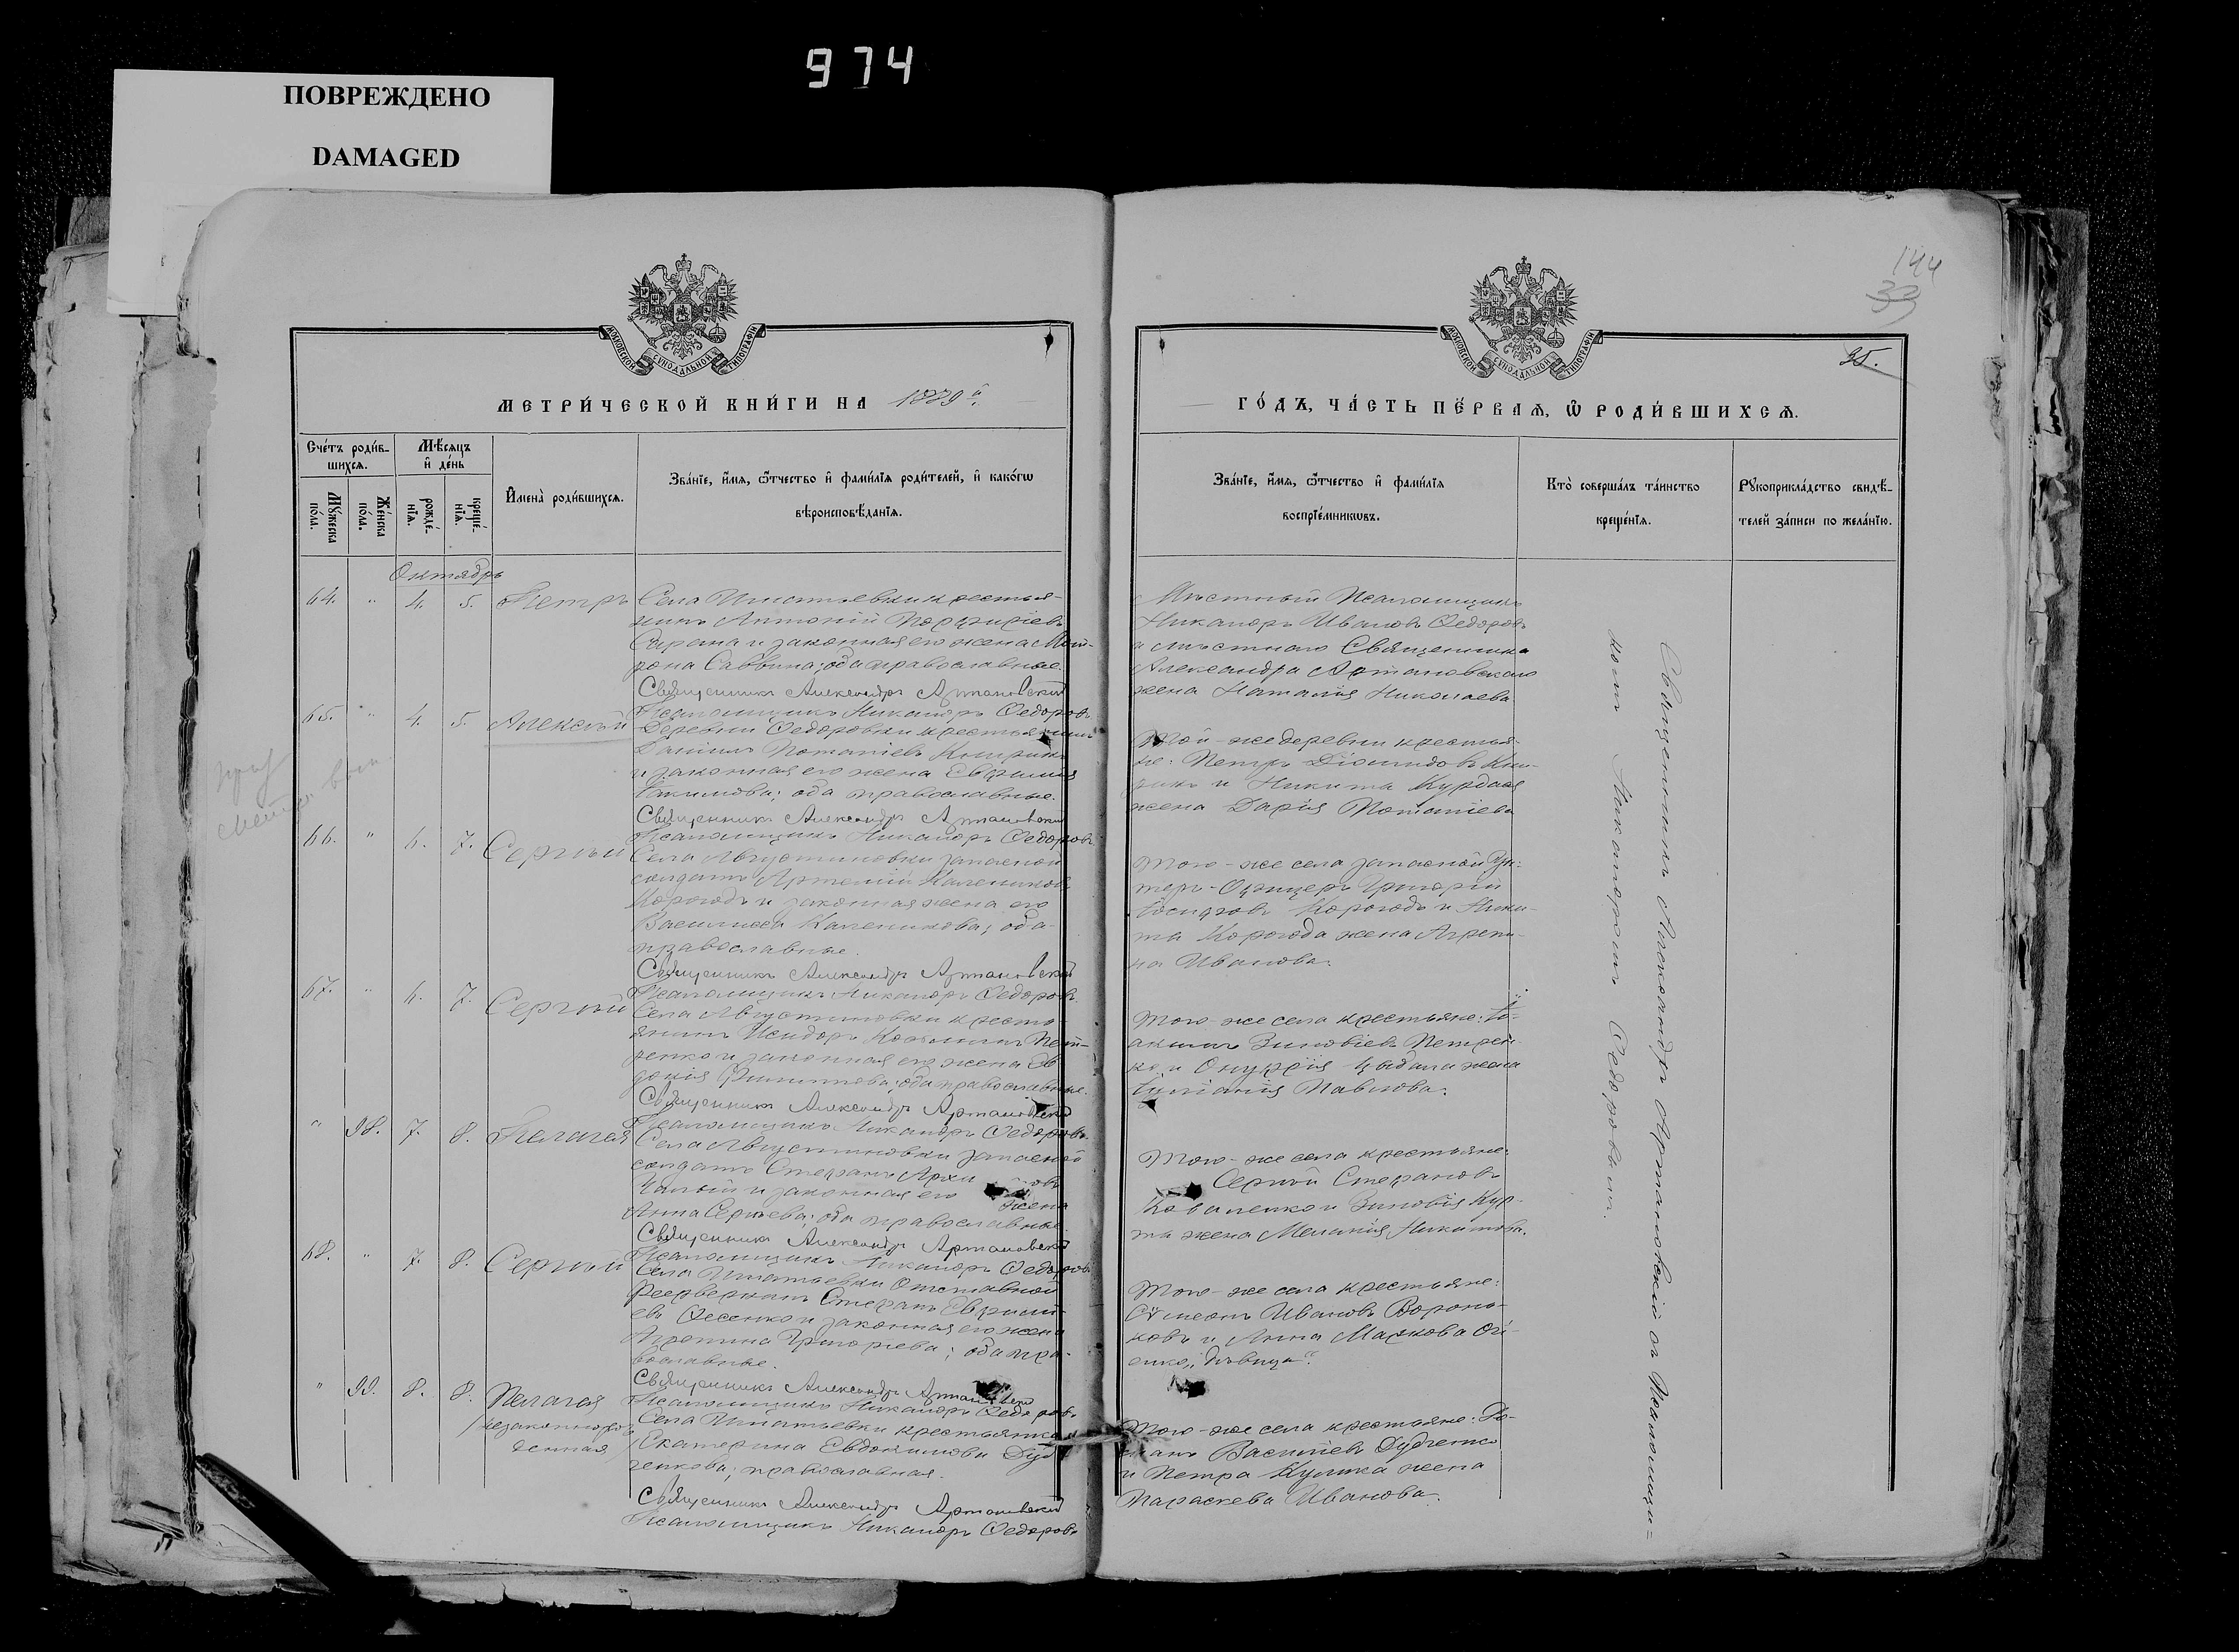 974
ПОВРЕЖДЕНО
DAMAGED
144
33
35.
МОСКОВСКОЙ СУНОДАЛЬНОЙ ТИПОГРАФІИ
МОСКОВСКОЙ СУНОДАЛЬНОЙ ТИПОГРАФІИ
МЕТРИ́ЧЕСКОЙ КНИ́ГИ НА 1889й
ГО́ДЪ, ЧА́СТЬ ПЕ́РВАѦ, Ѡ҆ РОДИ́ВШИХСѦ.
Счетъ родив-
шихсѧ.
Мѣсѧцъ
и день
Мужеска пола.
Женска пола.
рожде-
нїѧ.
креще-
нїѧ.
Имена родившихсѧ.
Званїе, имѧ, ѿчество и фамилїѧ родителей, и какогѡ
вѣроисповѣданїѧ.
Званїе, имѧ, ѿчество и фамилїѧ
воспрїемникѡвъ.
Кто совершалъ таинство
крещенїѧ.
Рукоприкладство свидѣ-
телей записи по желанїю.
Октябрь
64. " 4. 5. Петръ
Села Игнатьевки крестья-
нинъ Антоній Порфиріевъ
и законная его жена
Саввина; оба православные.
Священникъ Александръ Артановскій
Псаломщикъ Никаноръ Федоровъ
Мѣстный Псаломщикъ
Никаноръ Ивановъ Федоровъ
и мѣстнаго Священника
Александра Артановскаго
жена Наталія Николаева
65. " 4. 5. Алексѣй
Деревни Федоровки крестьянинъ
Даніилъ Потапіевъ
и законная его жена Евфимія
Іакимова; оба православные.
Священникъ Александръ Артановскій
Псаломщикъ Никаноръ Федоровъ
Той-же деревни крестья-
не: Петръ Діомидовъ
и Никита
жена Дарія Потапіева
66. " 6. 7. Сергѣй
Села Августиновки запасной
солдатъ Артемій Калениковъ
Корогодъ и законная жена его
Василиса Каленикова; оба
православные.
Священникъ Александръ Артановскій
Псаломщикъ Никаноръ Федоровъ
Того-же села запасной Ун-
теръ-Офицеръ Григорій
Іосифовъ Корогодъ и Ники-
та Корогода жена Агрепи-
на Иванова.
67. " 6. 7. Сергѣй
Села Августиновки кресть-
янинъ Исидоръ Козьминъ Пет-
ренко и законная его жена Ев-
докія Филиппова; оба православные.
Священникъ Александръ Артановскій
Псаломщикъ Никаноръ Федоровъ
Того-же села крестьяне: Іо-
акимъ Зиновіевъ Петрен-
ко и Онуфрія Цыбала жена
Іуліанія Павлова.
" 98. 7. 8. Пелагея
Села Августиновки запасной
солдатъ Стефанъ
и законная его жена
Анна Сергѣева; оба православные.
Священникъ Александръ Артановскій
Псаломщикъ Никаноръ Федоровъ
Того-же села крестьяне:
Сергѣй Стефановъ
Коваленко и Зиновія Кур-
та жена Меланія Никитова.
68. " 7. 8. Сергѣй
Села Игнатьевки Отставной
Феерверкинъ Стефанъ Евфимі-
евъ и законная его жена
Агрепина Григорьева; оба пра-
вославные.
Священникъ Александръ Артановскій
Псаломщикъ Никаноръ Федоровъ
Того-же села крестьяне:
Сумеонъ Ивановъ Вороно-
ковъ и Анна Маркова
"дѣвица".
" 99. 8. 8. Пелагея
/незаконнорож-
денная/
Села Игнатьевки крестьянка
Екатерина Евдокимова Дуд-
ченкова; православная.
Священникъ Александръ Артановскій
Псаломщикъ Никаноръ Федоровъ
Того-же села крестьяне: Ро-
манъ Василіевъ Дудченко
и Петра Кулика жена
Параскева Иванова.
Священникъ Александръ Артановскій съ Псаломщи=
комъ Никаноромъ Федоровымъ.